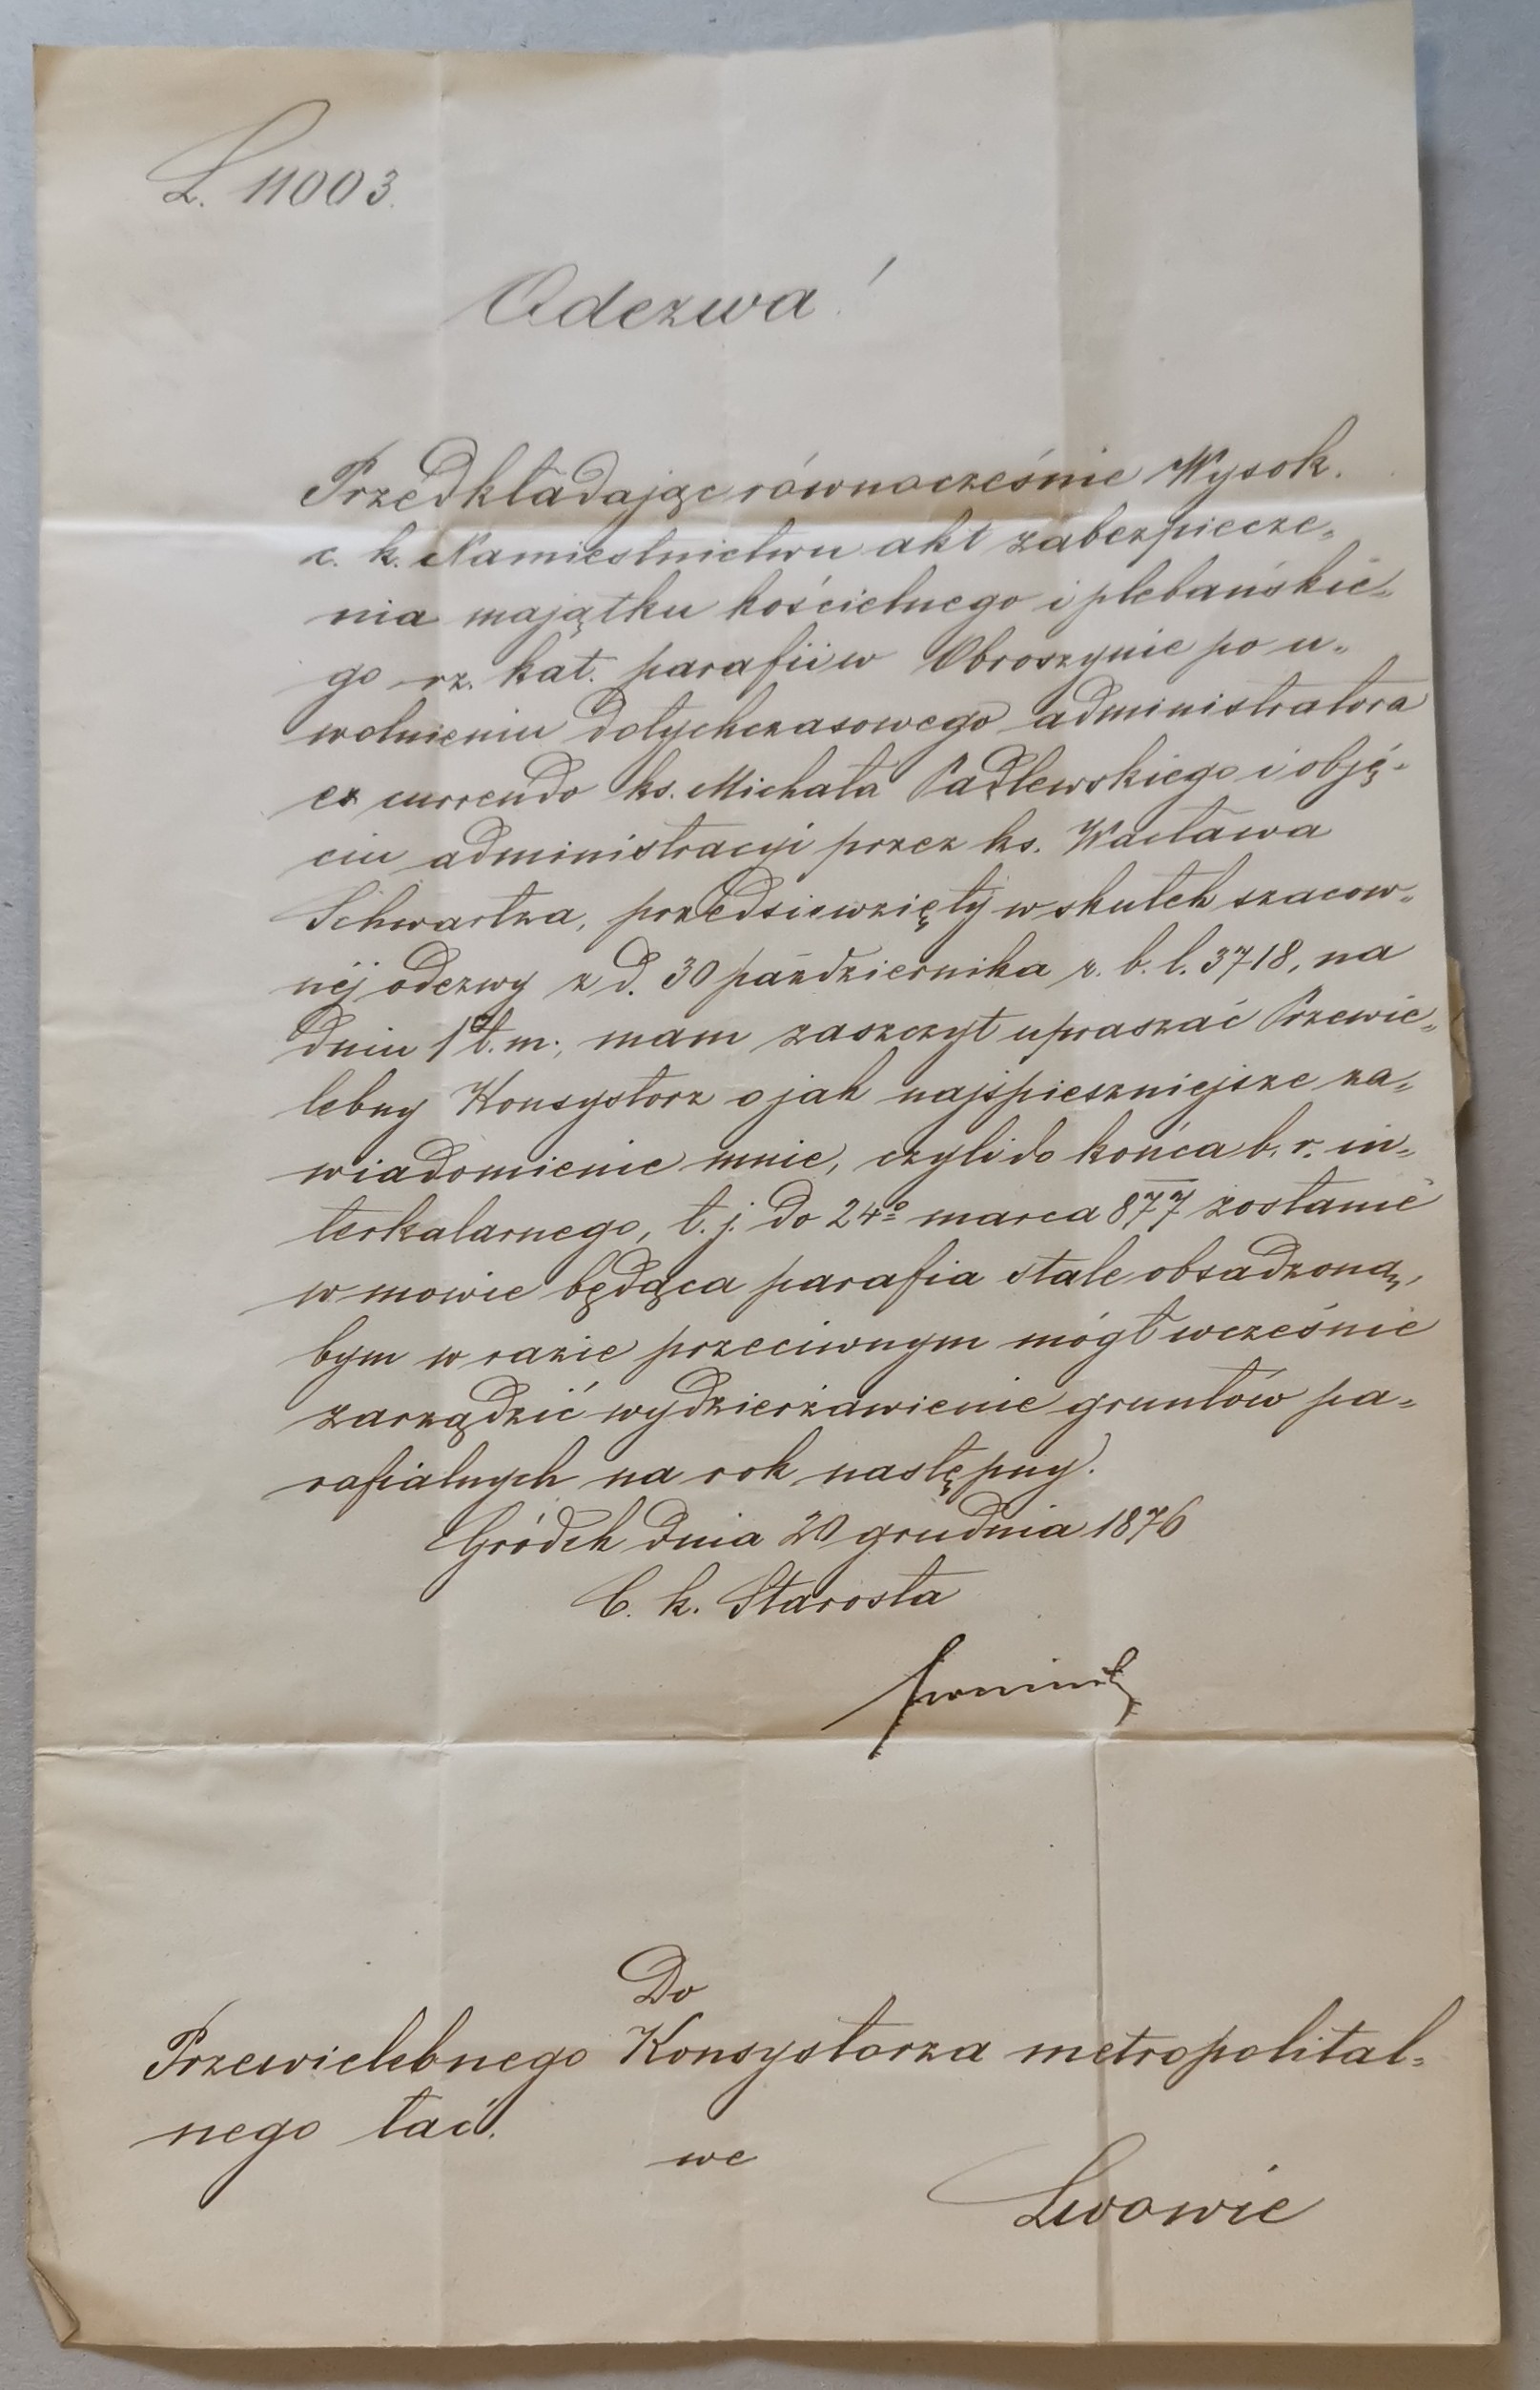 L. 11003.
Odezwa!
Przedkładając równocześnie Wysok.
c. k. Namiestnictwu akt zabezpiecze„
nia majątku kościelnego i plebańskie„
go rz. kat. parafii w Obroszynie po u„
wolnieniu dotychczasowego administratora
ex currendo ks. Michała Padlewskiego i obję„
ciu administracyi przez ks. Wacława
Schwartza, przedsiewzięty w skutek szacow„
néj odezwy z d. 30 października r. b. l. 3718, na
dniu t. m., mam zaszczyt upraszać Przewie„
lebny Konsystorz o jak najspieszniejsze za„
wiadomienie mnie, czyli do końca b. r. in„
terkalarnego, t. j. do 24º marca 877 zostanie
w mowie będąca parafia stale obsadzoną,
bym w razie przeciwnym mógł wcześnie
zarządzić wydzierżawienie gruntów pa„
rafialnych na rok następny.
Gródek dnia 20 grudnia 1876
C. k. Starosta
Do
Przewielebnego Konsystorza metropolital„
nego łać.
we
Lwowie